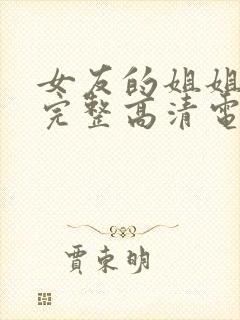 女友的姐姐
完整高清电
贾東明